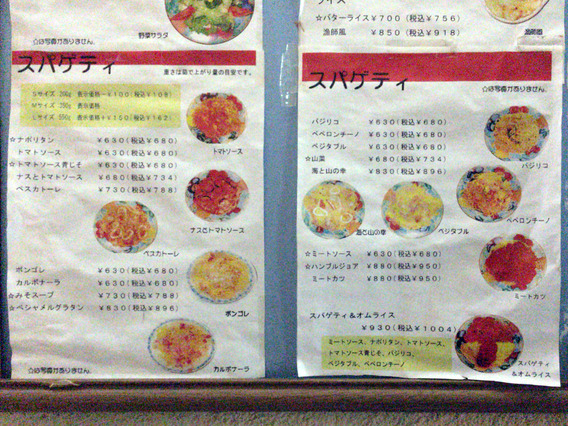 ☆は写真がありません。
野菜サラダ
スパゲティ
重さは茹で上がり量の目安です。
Sサイズ 200g 表示価格－¥100(税込¥108)
Mサイズ 250g 表示価格
Lサイズ 550g 表示価格+¥150(税込¥162)
☆ナポリタン ¥630(税込¥680)
トマトソース ¥630(税込¥680)
☆トマトソース青じそ ¥630(税込¥680)
ナスとトマトソース ¥680(税込¥734)
ペスカトーレ ¥730(税込¥788)
トマトソース
ナスとトマトソース
ペスカトーレ
ボンゴレ ¥630(税込¥680)
カルボナーラ ¥630(税込¥680)
☆みそスープ ¥730(税込¥788)
☆ベシャメルグラタン ¥830(税込¥896)
ボンゴレ
カルボナーラ
☆は写真がありません。
ライス
☆バターライス ¥700(税込¥756)
漁師風 ¥850(税込¥918)
漁師風
スパゲティ
☆は写真がありません。
バジリコ ¥630(税込¥680)
ペペロンチーノ ¥630(税込¥680)
ベジタブル ¥630(税込¥680)
☆山菜 ¥680(税込¥734)
海と山の幸 ¥830(税込¥896)
バジリコ
ペペロンチーノ
海と山の幸
ベジタブル
☆ミートソース ¥630(税込¥680)
☆ハンブルジョア ¥880(税込¥950)
ミートカツ ¥880(税込¥950)
ミートカツ
スパゲティ&オムライス
¥930(税込¥1004)
ミートソース、ナポリタン、トマトソース、
トマトソース青じそ、バジリコ、
ベジタブル、ペペロンチーノ
スパゲティ
&オムライス